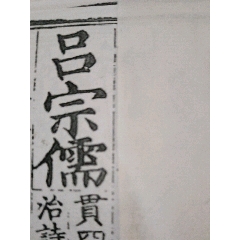 呂宗儒
貫四
治詩